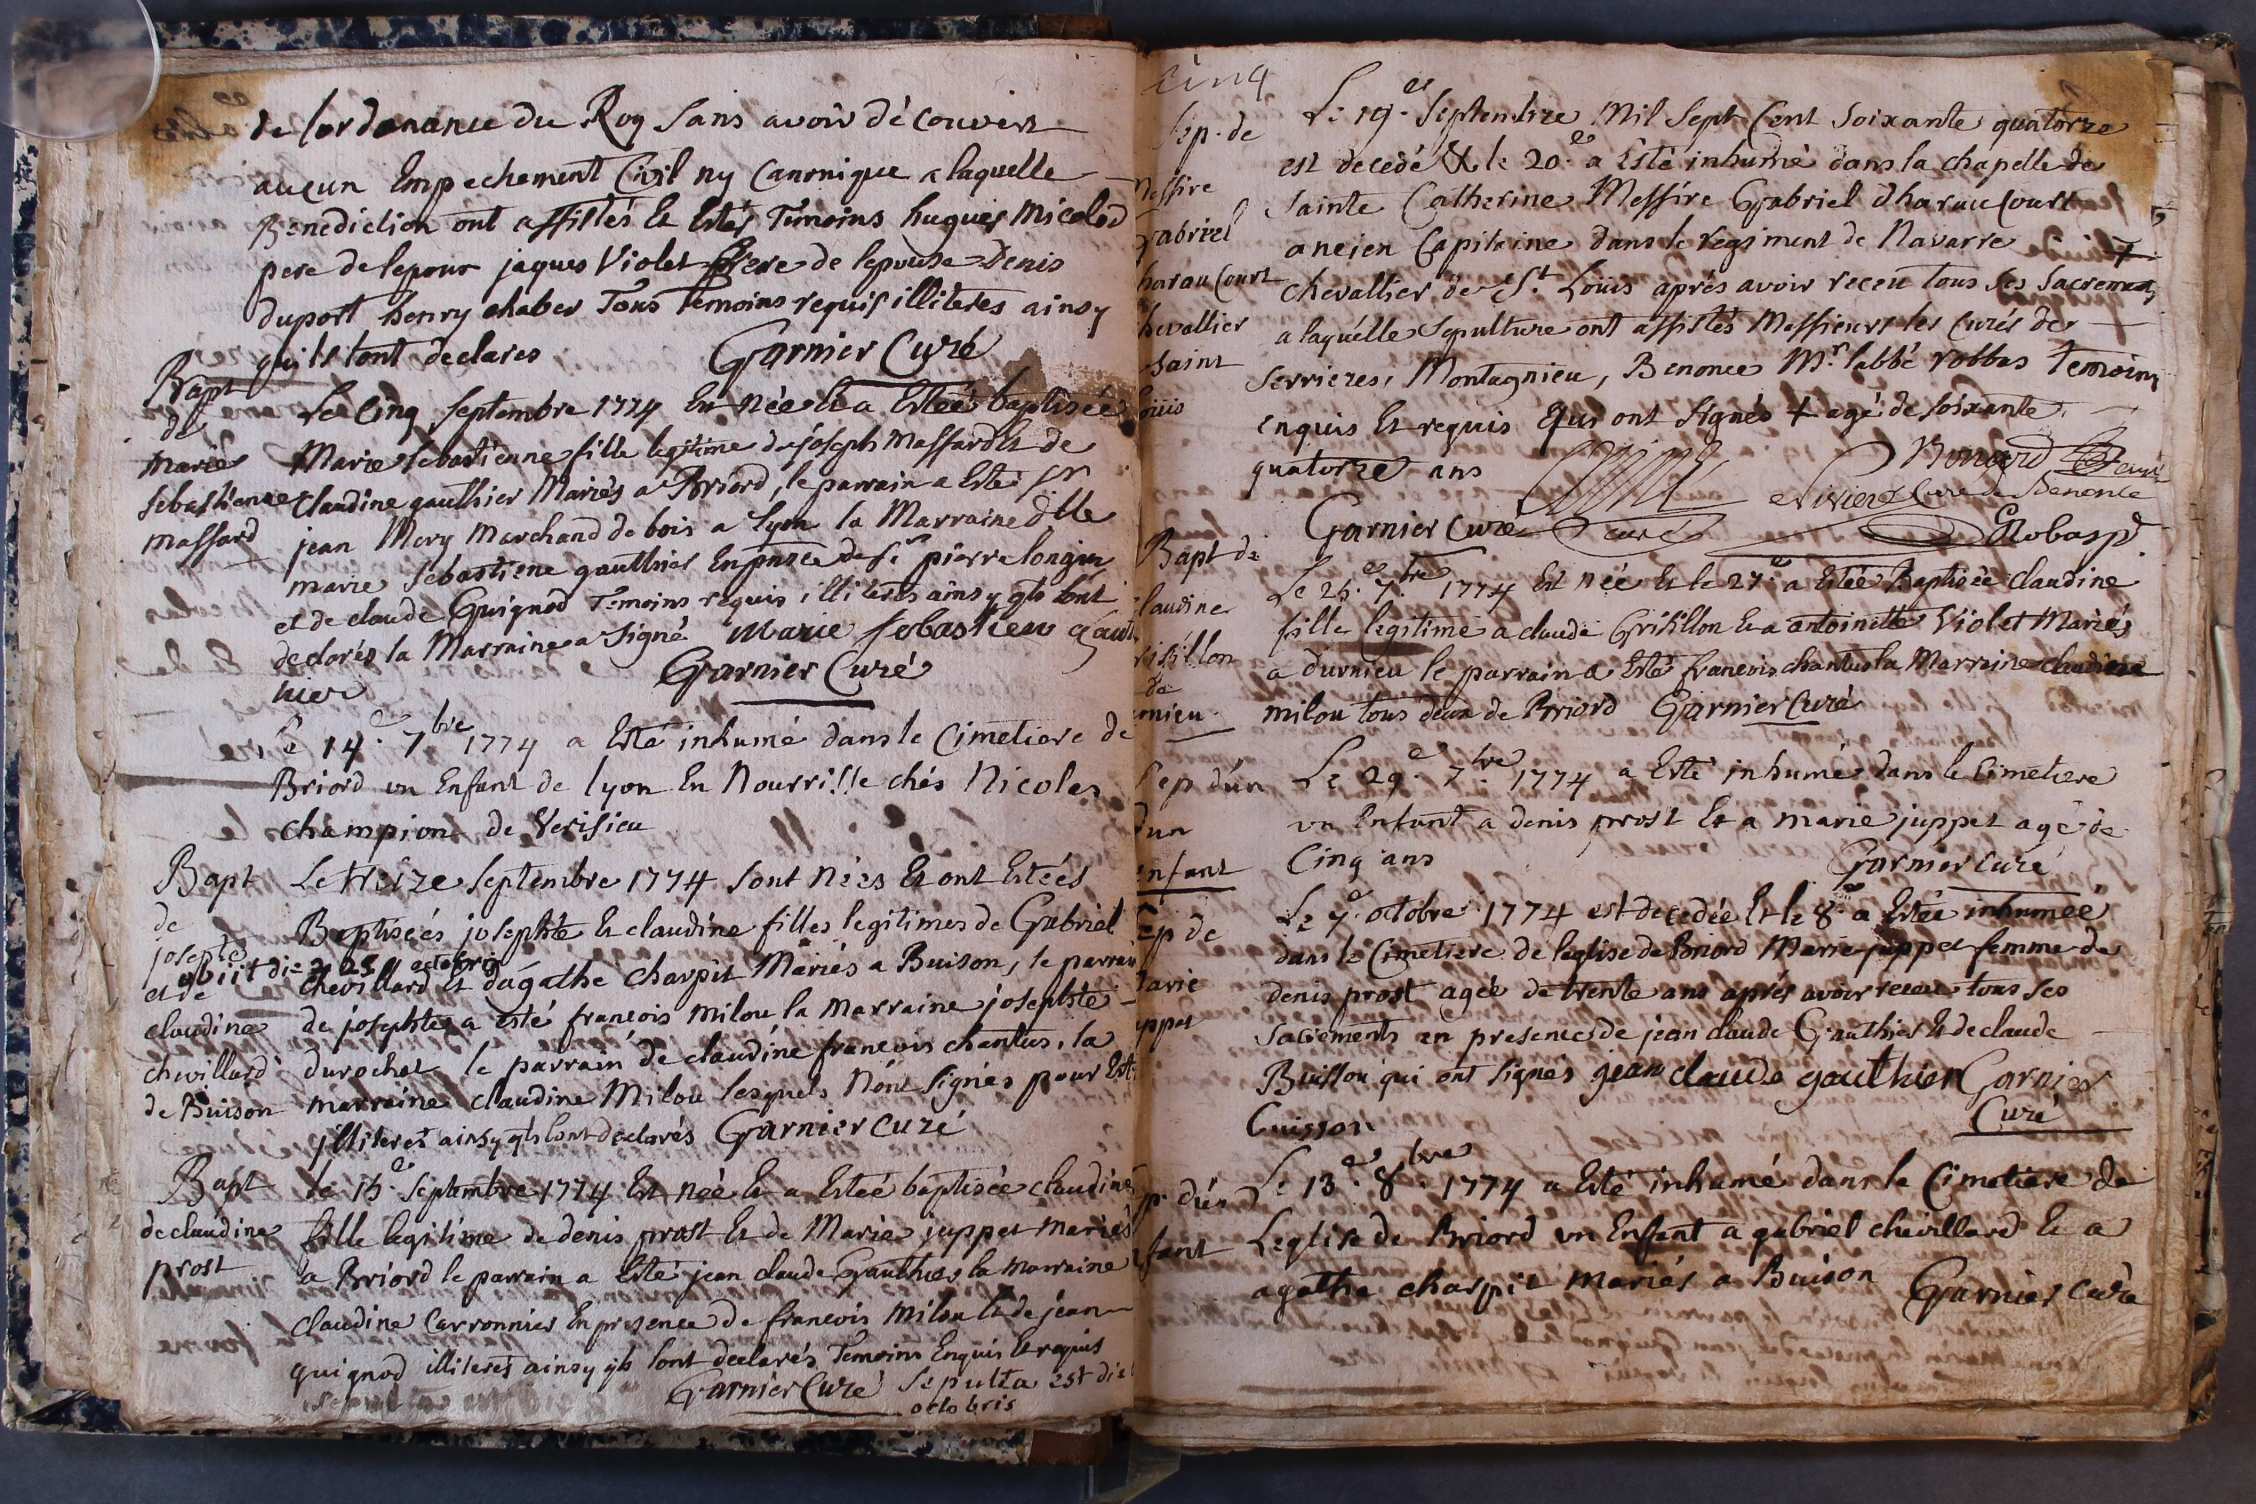 de lordonance du Roy sans avoir découvert
aucun Empechement Civil ny Canonique a laquelle
Benediction ont assistés Et Estés Témoins hugues micolod
pere de lepoux jaques Violet frere de lepouse Denis
duport henry chaber Tous Temoins requis illiteres ainsy
quils sont declares Garnier Curé
Bapt
de
marie
sebastienne
massard
Le Cinq Septembre 1774 Est née et a Esteé baptisée
Marie sebastienne fille legitime de joseph massard Et de
Claudine gauthier Mariés a Briord, le parrain a Esté sr
jean Mery Marchand de bois a Lyon la Marraine dlle
marie Sébastiene gauthier En pnsce de sr pierre longin
et de claude Guignod Temoins requis illiterés ainsy qls sont
declarés la Marraine a signé marie sebastien gaut
hier Garnier Curé
Le 14e 7bre 1774 a Esté inhumé dans le Cimetiere de
Briord un Enfant de lyon En Nourrisse chés Nicolas
champion de Verisieu
Bapt
de
josepte
et de
claudine
chevillard
de Buison
Le treize Septembre 1774 sont nées Et ont Esteés
Baptiseés josephte Et claudine filles legitimes de Gabriel
obiit die 25 octobris
chevillard Et dagathe Charpit Mariés a Buison, le parrain
de josephte a esté francois milou la marraine josephte
durochat le parrain de claudine francois chantus, la
marraine claudine Milou lesquels N'ont signés pour Est
illiterés ainsy qls sont declarés Garnier curé
Bapt
de claudine
prost
le 15e Septembre 1774 Est née Et a Esteé baptisée claudine
fille legitime de denis prost Et de Marie juppet mariés
a Briord le parrain a Esté jean claude Gauthier la marraine
claudine Carronnier En presence de francois milou Et de jean
guignod illiterés ainsy qls sont declarés Temoins Enquis Et requis
Garnier Curé Sepulta est die
octobris
cinq
Sep. de
Messire
Gabriel
harau Court
hevallier
Saint
oüis
Le 19e Septembre Mil Sept Cent Soixante quatorze
est decedé & le 20e a Esté inhumé dans la chapelle de
Sainte Catherine Messire Gabriel dharaucourt
ancien Capitaine dans le regiment de Navarre +
chevallier de St Loüis aprés avoir receu tous ses sacrements
a laquelle Sepulture ont assistés Messieurs les Curés de
Serrieres, Montagnieu, Benonce Mr labbé robbas temoins
enquis Et requis Qui ont signés + agé de soixante
quatorze ans
curé de Benonce
Garnier Curé curé Robas p
Bapt de
laudine
risillon
de
rnieu
Le 25e 7bre 1774 Est née Et le 27e a Esteé Baptisée claudine
fille legitime a claude Grisillon Et a antoinette Violet Mariés
a durnieu le parrain a Esté francois chantus la Marraine claudine
milou tous deux de Briord Garnier Curé
Sep d'un
d'un
enfant
Le 29e 7bre 1774 a Esté inhumé dans le Cimetiere
un Enfant a denis prost Et a marie juppet agé de
Cinq ans Garnier curé
Sep de
Marie
uppet
Le 7e octobre 1774 est decedée Et le 8e a Esteé inhumée
dans le Cimetiere de leglise de Briord Marie juppet femme de
denis prost ageé de trente ans aprés avoir receu tous ses
sacrements en presence de jean claude Gauthier Et de claude
Buisson qui ont signés jean claude gauthier Garnier
Cuisson Curé
p. d'un
fant
Le 13e 8bre 1774 a Esté inhumé dans le Cimetiere de
Leglise de Briord un Enfant a gabriel chevillard Et a
agathe charpit mariés a Buison Garnier curé